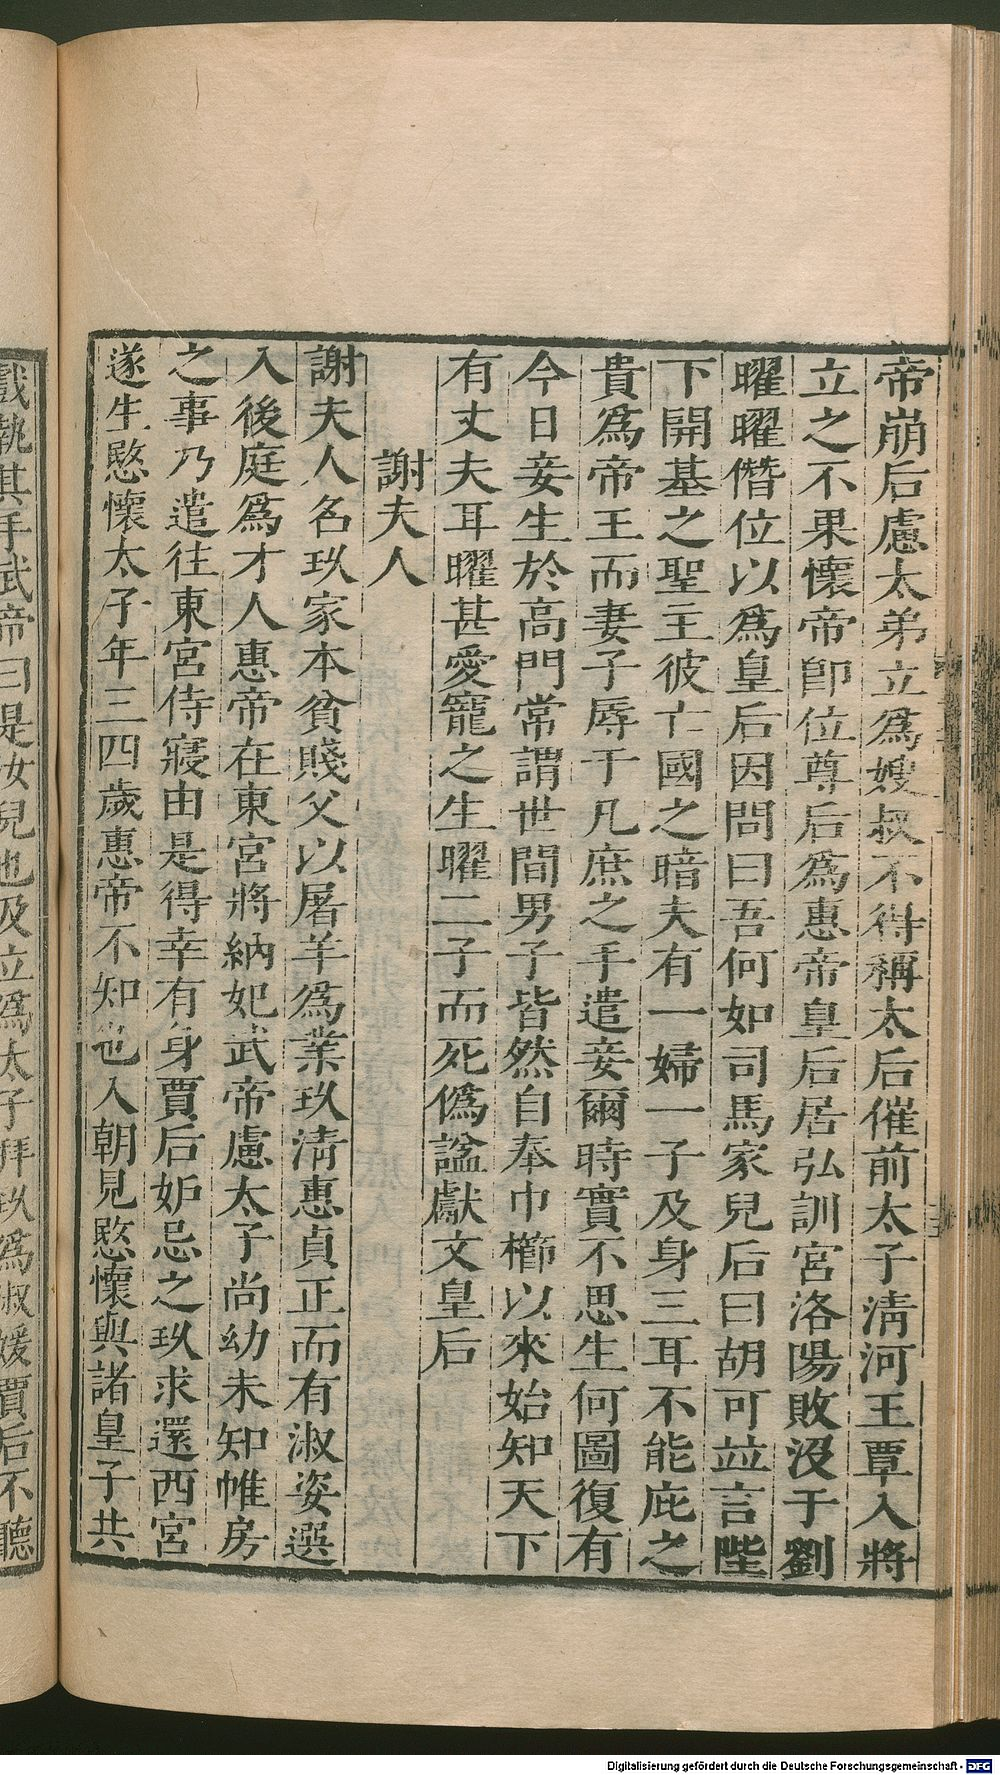 帝崩后慮太弟立爲嫂叔不得稱太后催前太子淸河王覃入將
立之不果懷帝卽位尊后爲惠帝皇后居弘訓宮洛陽敗沒于劉
曜曜僭位以爲皇后因問曰吾何如司馬家兒后曰胡可竝言陛
下開基之聖主彼亡國之暗夫有一婦一子及身三耳不能庇之
貴爲帝王而妻子辱于凡庶之手遣妾爾時實不思生何圖復有
今日妾生於高門常謂世間男子皆然自奉巾櫛以來始知天下
有丈夫耳曜甚愛寵之生曜二子而死僞諡獻文皇后
謝夫人
謝夫人名玖家本貧賤父以屠羊爲業玖淸惠貞正而有淑姿選
入後庭爲才人惠帝在東宮將納妃武帝慮太子尚幼未知帷房
之事乃遣往東宮侍寢由是得幸有身賈后妒忌之玖求還西宮
遂生愍懷太子年三四歲惠帝不知也入朝見愍懷與諸皇子共
戲執其手武帝曰是汝兒也及立爲太子拜玖爲淑媛賈后不聽
Digitalisierung gefördert durch die Deutsche Forschungsgemeinschaft - DFG